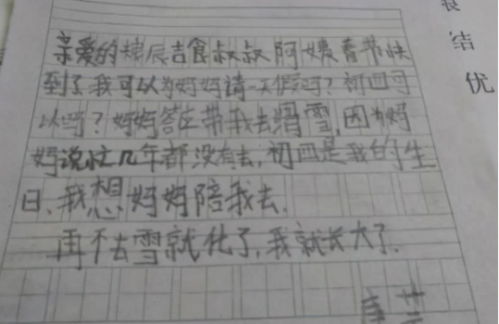 亲爱的辰吉食叔叔阿姨春节快
到了我可以为妈妈请一天假吗?初四可
以吗?妈妈答应带我去滑雪,因为妈
妈说忙几年都没有去,初四是我的生
日,我想妈妈陪我去.
再不去雪就化了,我就长大了.
结
优